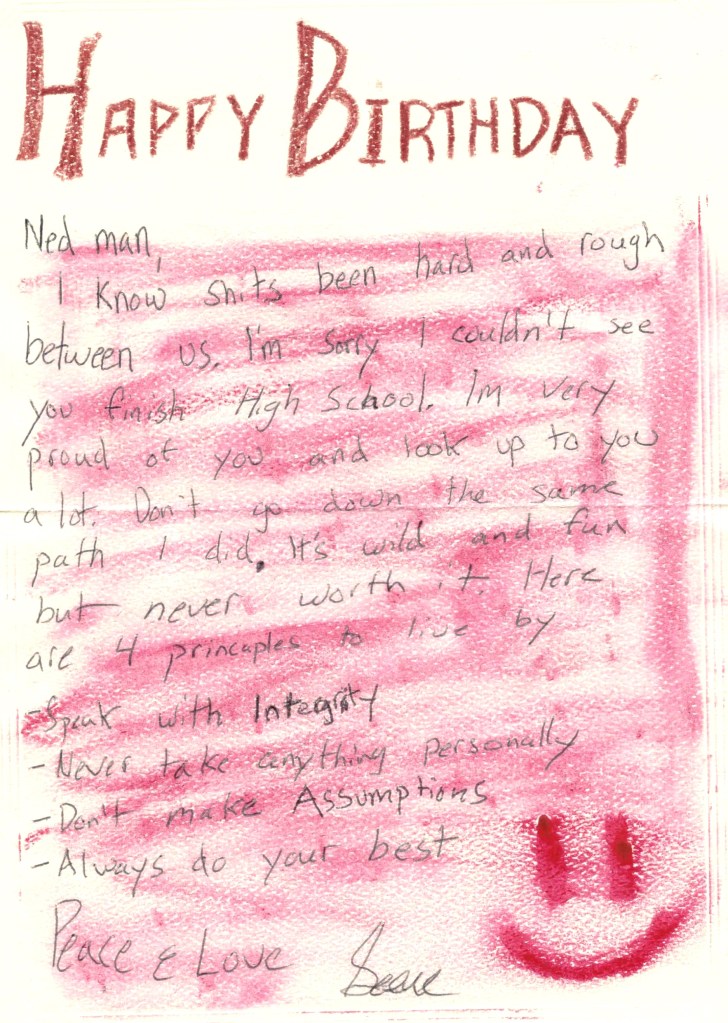 HAPPY BIRTHDAY
Ned man,
I know shits been hard and rough
between us. I'm sorry I couldn't see
you finish High School. I'm very
proud of you and look up to you
a lot. Don't go down the same
path I did. It's wild and fun
but never worth it. Here
are 4 princaples to live by
- Speak with Integrity
- Never take anything personally
- Don't make Assumptions
- Always do your best
Peace & Love